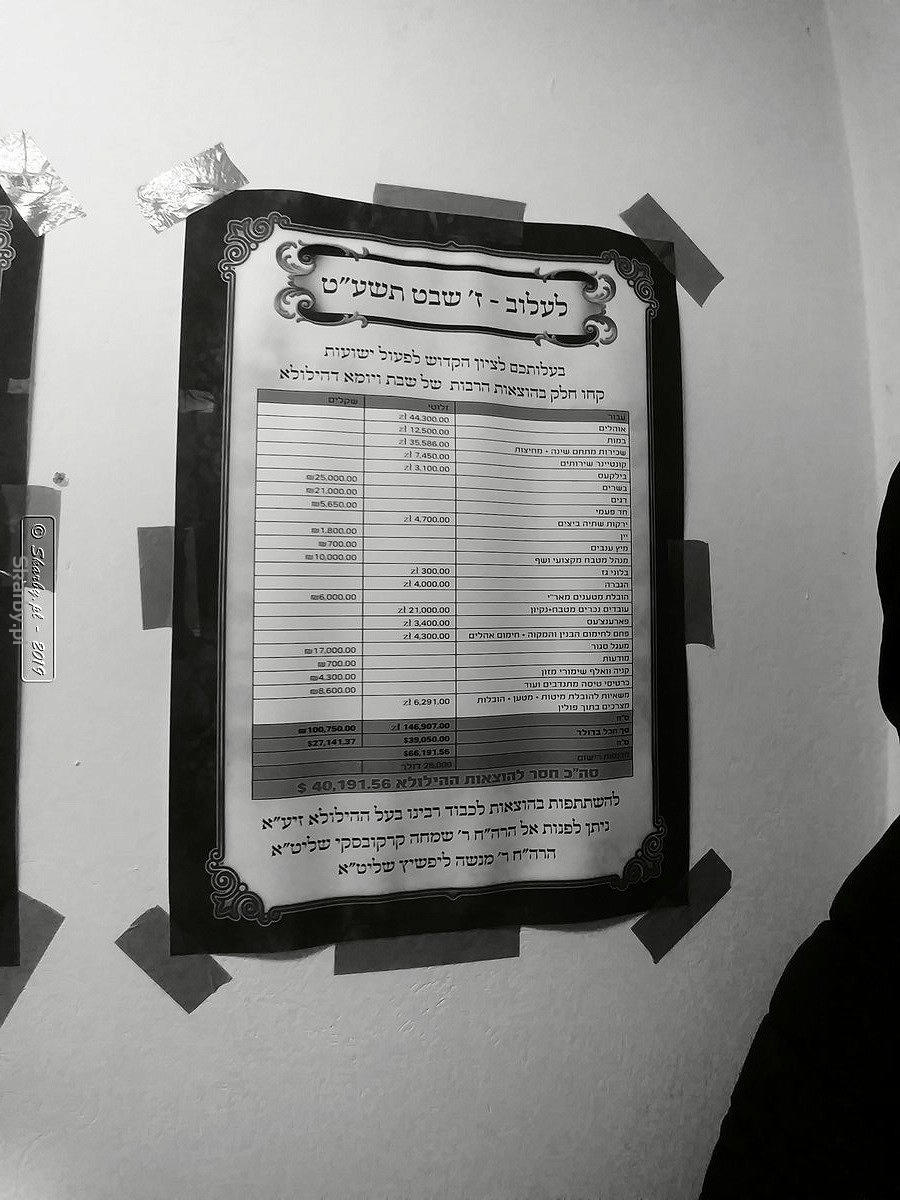 לעלוב - ז' שבט תשע"ט
בעלותכם לציון הקדוש לפעול ישועות
קחו חלק בהוצאות הרבות של שבת ויומא דהילולא
עבור זלוטי שקלים
אוהלים zł 44,300.00
במות zł 12,500.00
שכירות מתחם שינה + מחיצות zł 35,586.00
קונטיינר שירותים zł 7,450.00
בילקעס zł 3,100.00
בשרים ₪25,000.00
דגים ₪21,000.00
חד פעמי ₪5,650.00
ירקות שתיה ביצים zł 4,700.00
יין ₪1,800.00
מיץ ענבים ₪700.00
מנהל מטבח מקצועי ושף ₪10,000.00
בלוני גז zł 300.00
הגברה zł 4,000.00
הובלת מטענים מאר"י ₪6,000.00
עובדים נכרים מטבח+נקיון zł 21,000.00
פארענצ'עס zł 3,400.00
פחם לחימום הבנין והמקוה + חימום אהלים zł 4,300.00
מעגל סגור ₪17,000.00
מודעות ₪700.00
קניה וואלף שימורי מזון ₪4,300.00
כרטיסי טיסה מתנדבים ועוד ₪8,600.00
משאיות להובלת מיטות + מטען + הובלות
מצרכים בתוך פולין zł 6,291.00
ס"ה zł 146,907.00 ₪100,750.00
סך הכל בדולר $39,050.00 $27,141.37
ס"ה $66,191.56
הכנסות רישום 26,000 דולר
סה"כ חסר להוצאות ההילולא 40,191.56 $
להשתתפות בהוצאות לכבוד רבינו בעל ההילולא זיע"א
ניתן לפנות אל הרה"ח ר' שמחה קרקובסקי שליט"א
הרה"ח ר' מנשה ליפשיץ שליט"א
© Skarby.pl - 2019
Skarby.pl